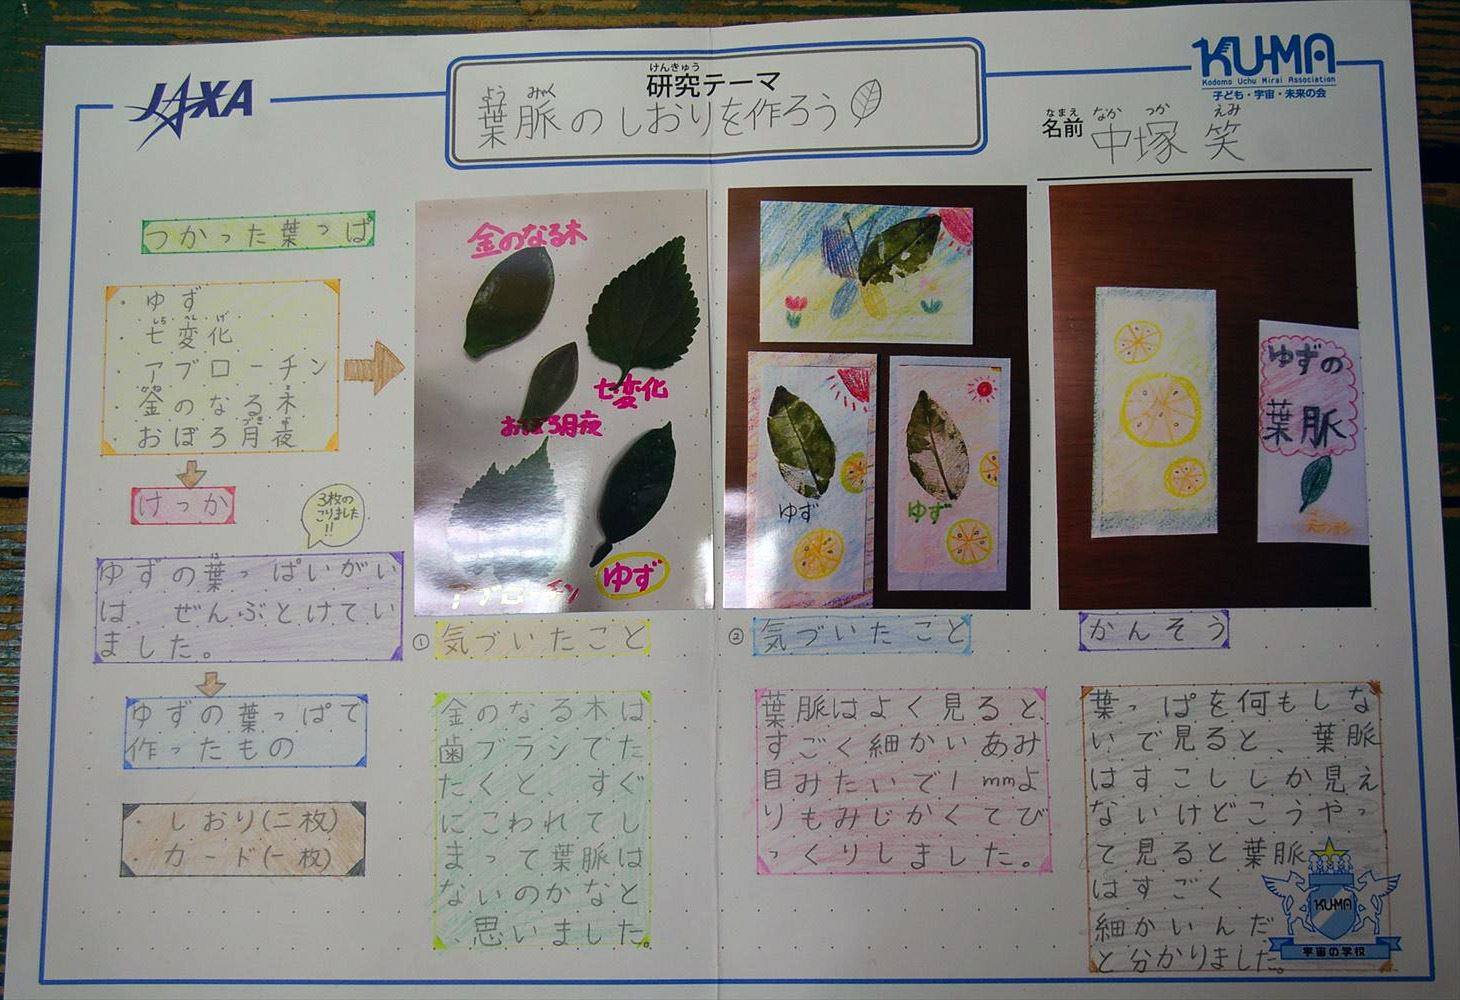 JAXA
けんきゅう
研究テーマ
よう みゃく
葉脈のしおりを作ろう
KU-MA
Kodomo Uchu Mirai Association
子ども・宇宙・未来の会
なまえ
名前
なか つか えみ
中塚 笑
つかった葉っぱ
・ゆず
しち へん げ
・七変化
・アブローチン
かね き
・金のなる木
づき よ
・おぼろ月夜
けっか
3枚の
こりました
!!
ゆずの葉っぱいがい
は、ぜんぶとけてい
ました。
ゆずの葉っぱで
作ったもの
・しおり(二枚)
・カード(一枚)
金のなる木
七変化
おぼろ月夜
アブローチン
ゆず
ゆず
ゆず
ゆずの
葉脈
① 気づいたこと
金のなる木は、
歯ブラシでた
たくと、すぐ
にこわれてし
まって葉脈は
ないのかなと
、思いました。
② 気づいたこと
葉脈はよく見ると、
すごく細かいあみ
目みたいで1mmよ
りもみじかくてび
っくりしました。
かんそう
葉っぱを何もしな
いで見ると、葉脈
はすこししか見え
ないけどこうやっ
て見ると葉脈
はすごく
細かいんだ
と分かりました。
KU-MA
宇宙の学校